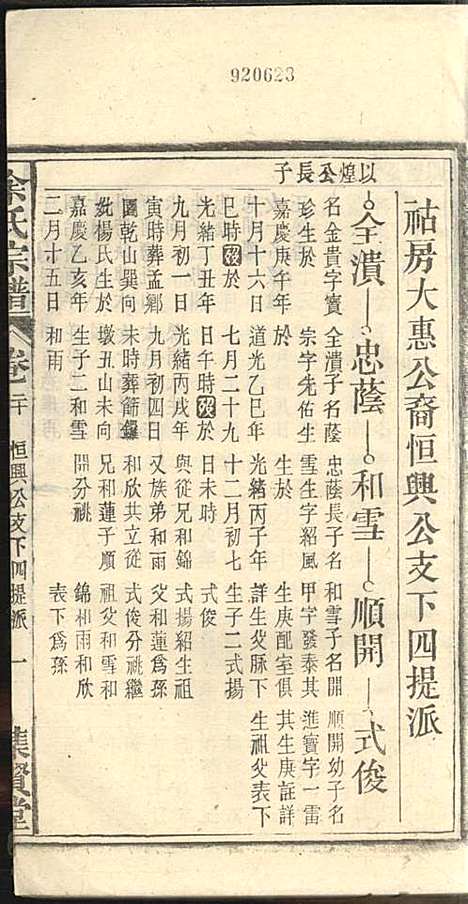 920623
祜房大惠公裔恒興公支下四提派
以煌公長子
全瀆 忠蔭 和雪 順開 式俊
名金貴字寶
珍生於
嘉慶庚午年
十月十六日
巳時歿於
光緒丁丑年
九月初一日
寅時葬孟鄉
圖乾山巽向
妣楊氏生於
嘉慶乙亥年
二月十五日
全瀆子名蔭
宗字先佑生
於
道光乙巳年
七月二十九
日午時歿於
光緒丙戌年
九月初四日
未時葬篩鑼
墩丑山未向
生子二和雪
和雨
忠蔭長子名
雪生字紹風
生於
光緒丙子年
十二月初七
日未時
與從兄和錦
又族弟和雨
和欣共立從
兄和蓮子順
開分祧
和雪子名開
甲字發泰其
生庚配室俱
詳生父脉下
生子二式揚
式俊
順開幼子名
進寶字一雷
其生庚註詳
生祖父表下
式揚紹生祖
父和蓮爲孫
式俊分祧繼
祖父和雪和
錦和雨和欣
表下爲孫
余氏宗譜
卷二十 恒興公支下四提派 一 集賢堂